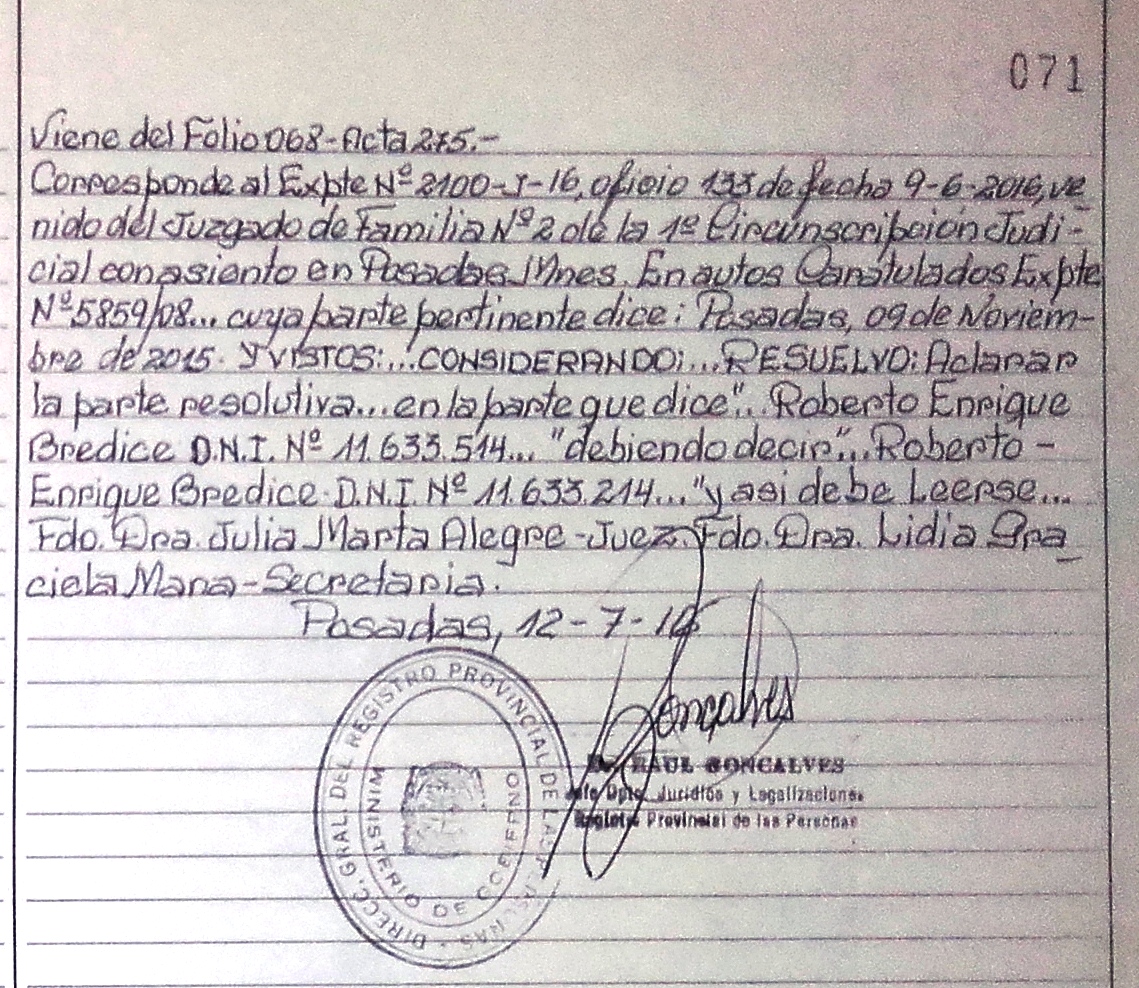 071
Viene del Folio 068-Acta 275.-
Corresponde al Expte Nº 2100-J-16, oficio 133 de fecha 9-6-2016, ve
nido del Juzgado de Familia Nº 2 de la 1º Circunscripción Judi-
cial con asiento en Posadas Mnes. En autos Caratulados Expte
Nº 5859/08... cuya parte pertinente dice: Posadas, 09 de Noviem-
bre de 2015. Y VISTOS:...CONSIDERANDO:...RESUELVO: Aclarar
la parte resolutiva...en la parte que dice"...Roberto Enrique
Bredice D.N.I. Nº 11.633.514... "debiendo decir"...Roberto -
Enrique Bredice. D.N.I. Nº 11.633.214..."y asi debe Leerse...
Fdo. Dra. Julia Marta Alegre-Juez. Fdo. Dra. Lidia Gra
ciela Mara-Secretaria.
Posadas, 12-7-16
Goncalves
RAUL GONCALVES
Jefe Dpto. Jurídico y Legalizaciones
Registro Provincial de las Personas
DIRECC. GRAL. DEL REGISTRO PROVINCIAL DE LAS PERSONAS
MINISTERIO DE GOBIERNO